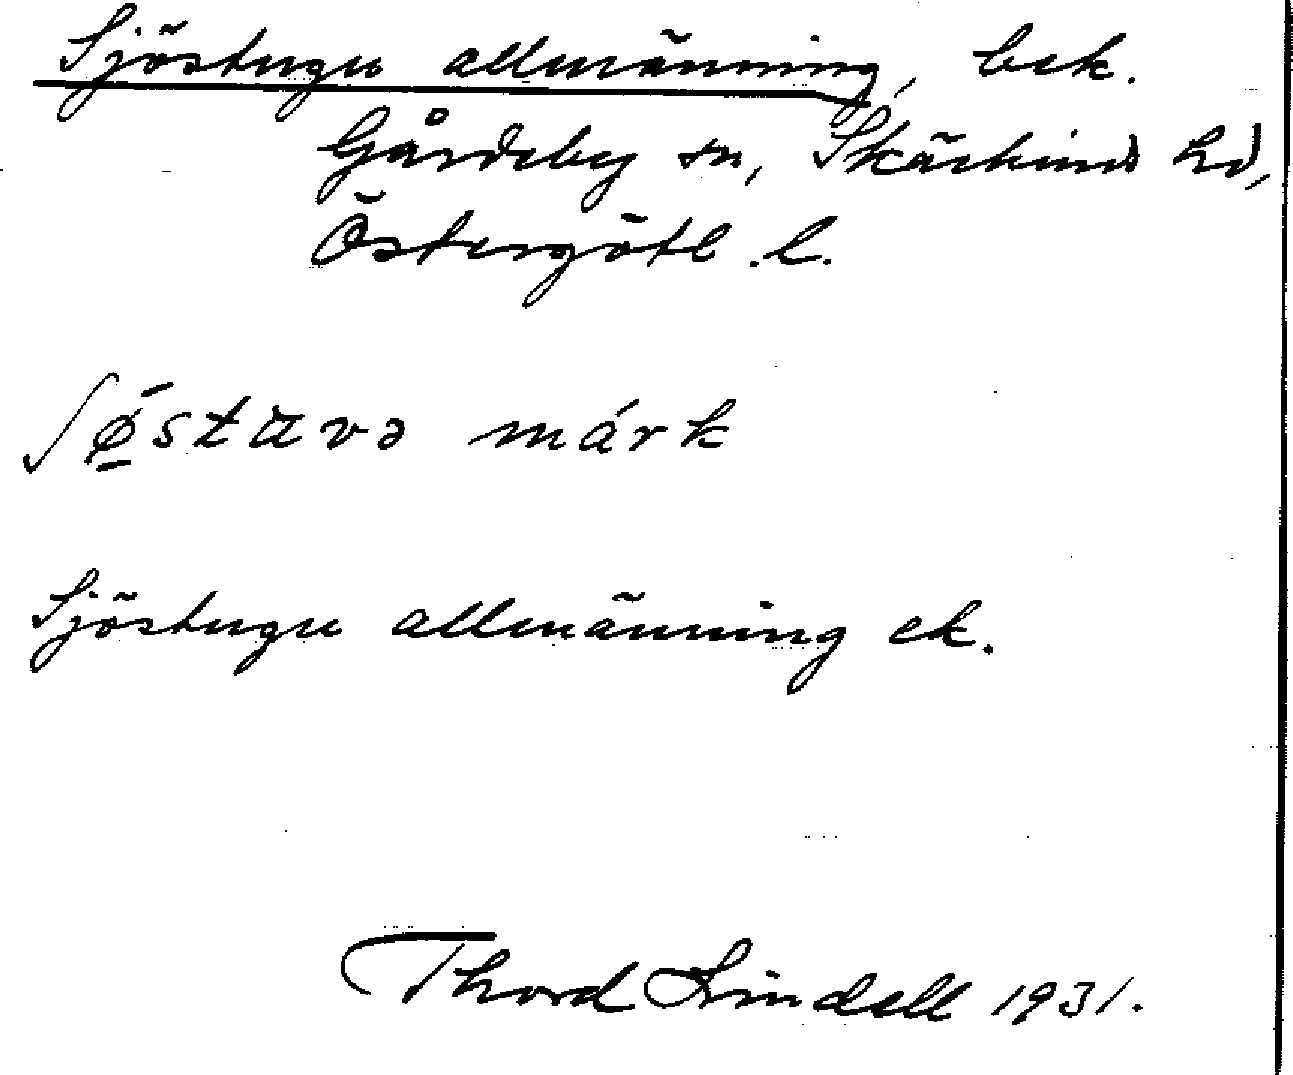 Sjöstugu allmänning, bek.
Gårdeby sn, Skärkinds hd,
Östergötl. l.
ʃǿ̱stuvə márk
Sjöstugu allmänning ek.
Thord Lindell 1931.